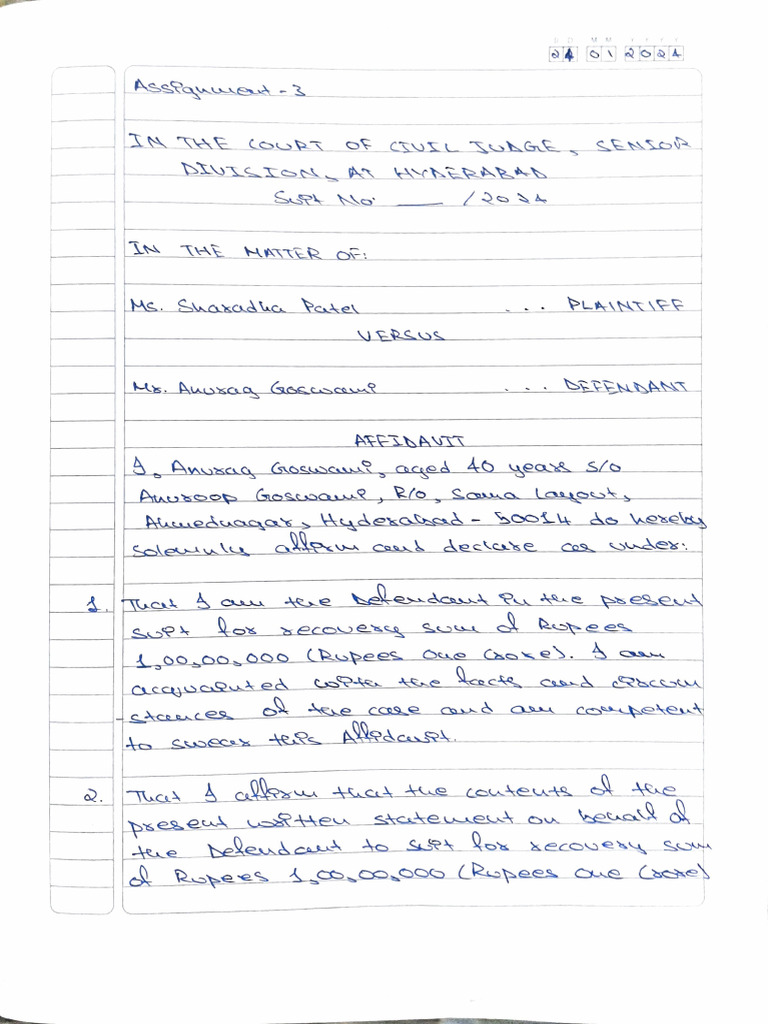 D D M M Y Y Y Y
24 01 2024
Assignment - 3
IN THE COURT OF CIVIL JUDGE, SENIOR
DIVISION, AT HYDERABAD
Suit No. ___ /2024
IN THE MATTER OF:
Ms. Sharadha Patel ... PLAINTIFF
VERSUS
Mr. Anurag Goswami ... DEFENDANT
AFFIDAVIT
I, Anurag Goswami, aged 40 years s/o
Anuroop Goswami, R/o, Sama Layout,
Ahmednagar, Hyderabad - 50014 do hereby
solemnly affirm and declare as under:
1. That I am the Defendant in the present
suit for recovery sum of Rupees
1,00,00,000 (Rupees One Crore). I am
acquainted with the facts and circum
-stances of the case and am competent
to swear this Affidavit.
2. That I affirm that the contents of the
present written statement on behalf of
the Defendant to suit for recovery sum
of Rupees 1,00,00,000 (Rupees One Crore)